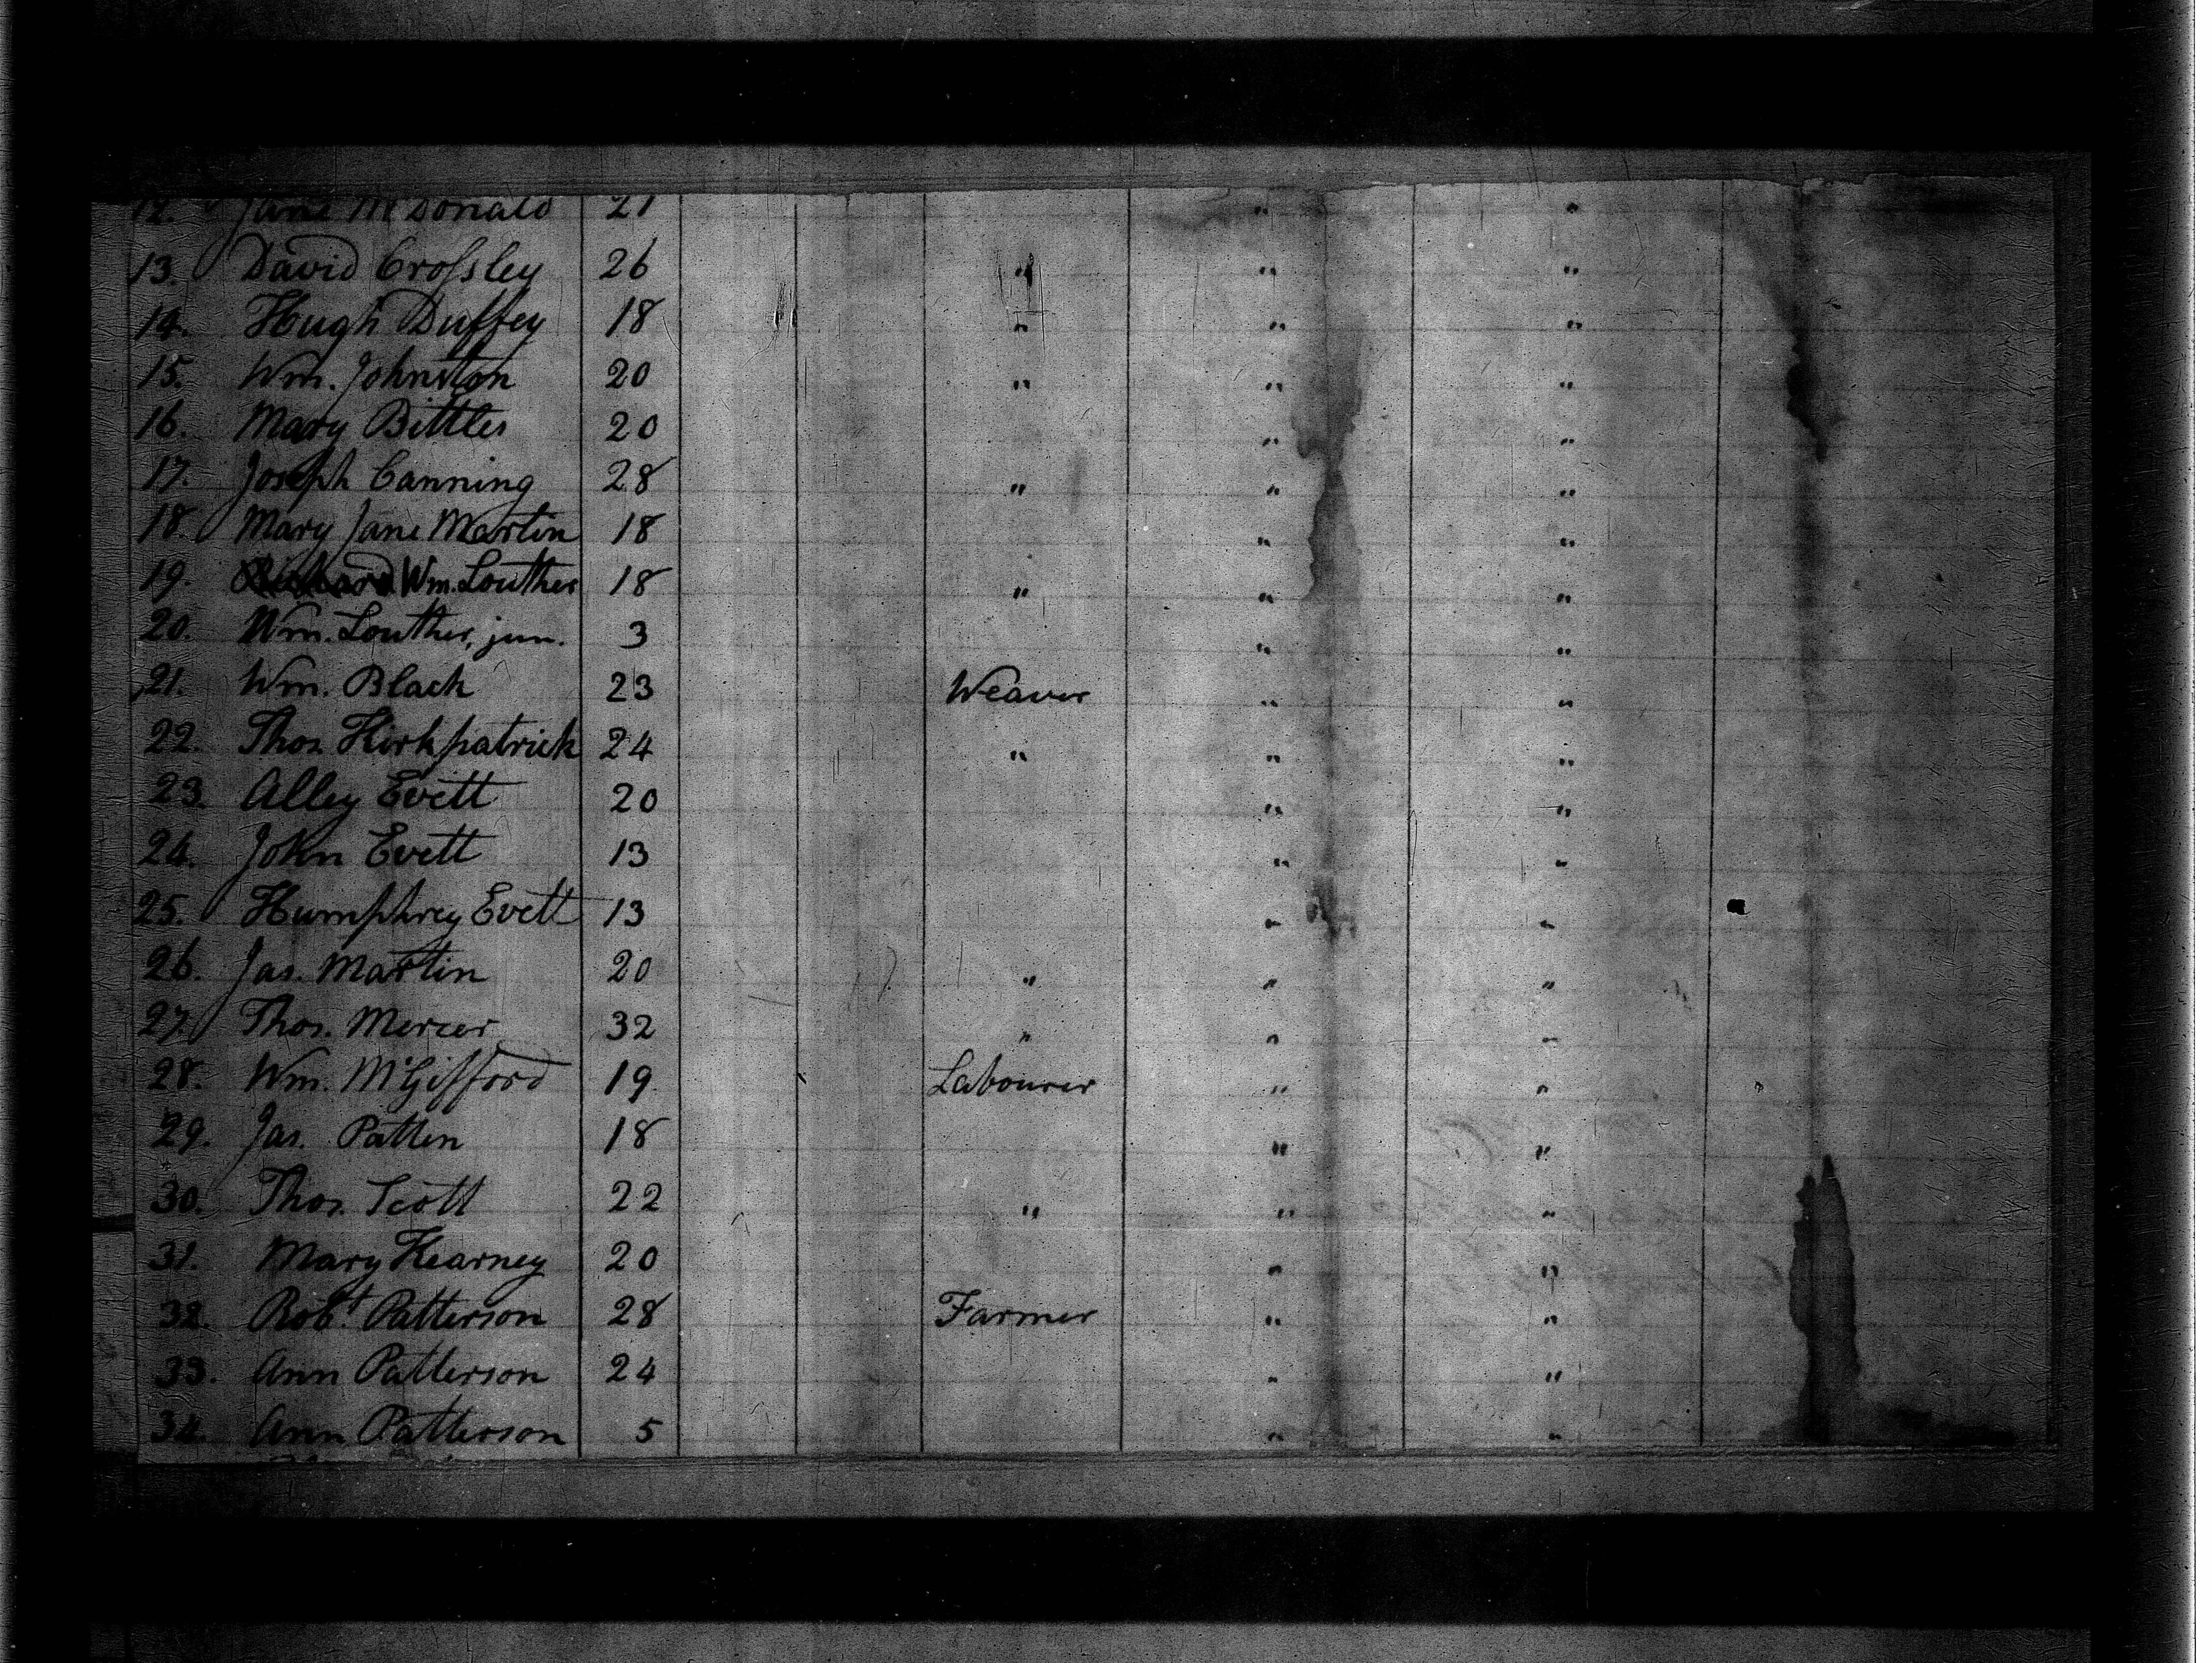 12. Jane McDonald 21 " "
13. David Crossley 26 " " "
14. Hugh Duffey 18 " " "
15. Wm. Johnston 20 " " "
16. Mary Bittles 20 " "
17. Joseph Canning 28 " " "
18. Mary Jane Martin 18 " "
19. Richard Wm. Louther 18 " " "
20. Wm. Louther, jun. 3 " "
21. Wm. Black 23 Weaver " "
22. Thos. Kirkpatrick 24 " " "
23. Alley Evett 20 " "
24. John Evett 13 " "
25. Humphrey Evett 13 " "
26. Jas. Martin 20 " " "
27. Thos. Mercer 32 " " "
28. Wm. M'Gifford 19 Labourer " "
29. Jas. Patten 18 " "
30. Thos. Scott 22 " " "
31. Mary Kearney 20 " "
32. Robt. Patterson 28 Farmer " "
33. Ann Patterson 24 " "
34. Ann Patterson 5 " "